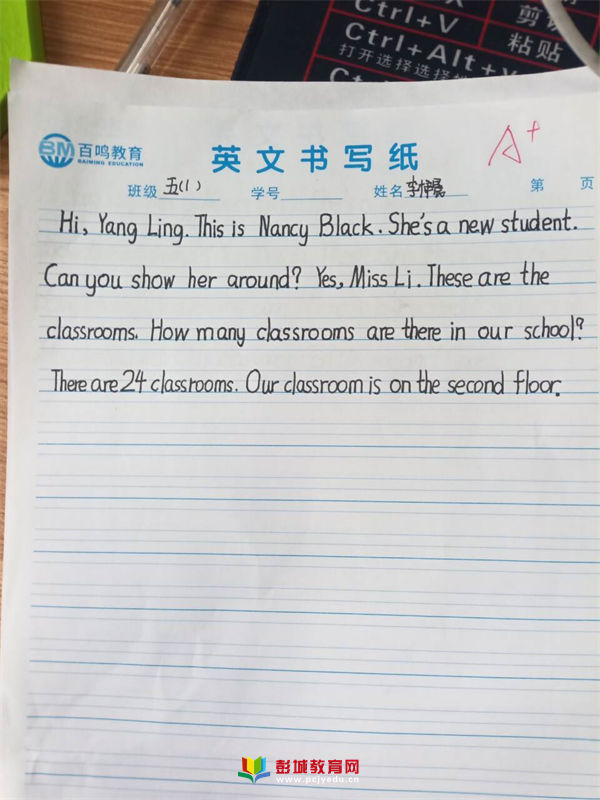 Ctrl+V
剪
Ctrl+Alt+V
粘贴
打开选择选择
Ctrl+
BM 百鸣教育
BAIMING EDUCATION
英文书写纸
A+
班级 五(1) 学号 姓名 李 第 页
Hi, Yang Ling. This is Nancy Black. She's a new student.
Can you show her around? Yes, Miss Li. These are the
classrooms. How many classrooms are there in our school?
There are 24 classrooms. Our classroom is on the second floor.
彭城教育网
www.pcjyedu.cn